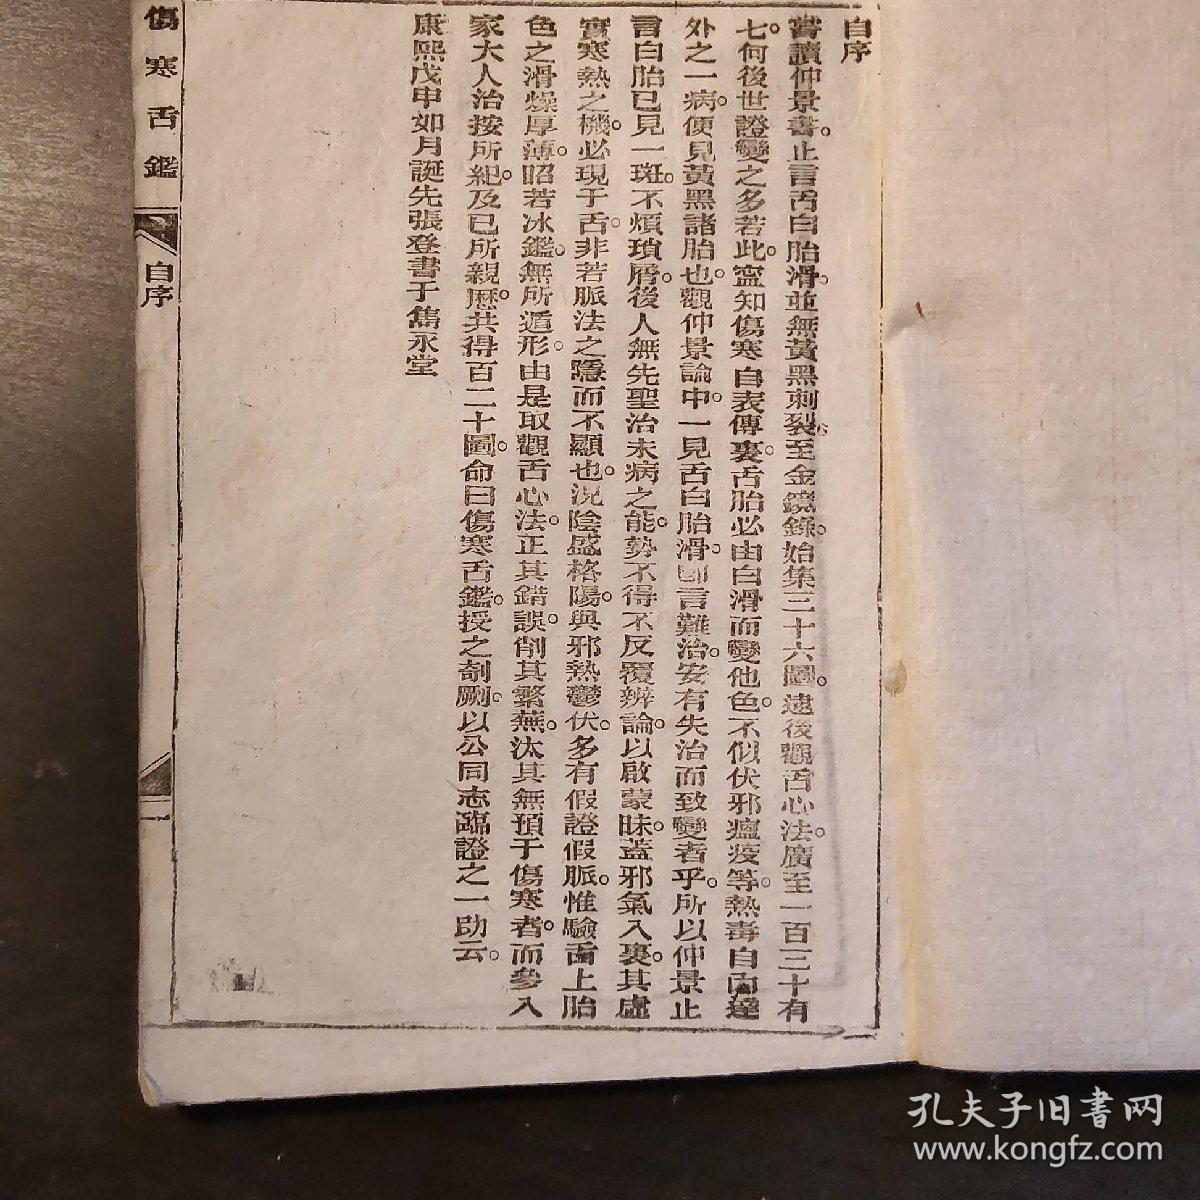 自序
嘗讀仲景書。止言舌白胎滑。並無黃黑刺裂。至金鏡錄。始集三十六圖。逮後觀舌心法。廣至一百三十有
七。何後世證變之多若此。寍知傷寒自表傳裏。舌胎必由白滑而變他色。不似伏邪瘟疫等。熱毒自內達
外之一病。便見黃黑諸胎也。觀仲景論中。一見舌白胎滑。即言難治。安有失治而致變者乎。所以仲景止
言白胎已見一斑。不煩瑣屑。後人無先聖治未病之能。勢不得不反覆辨論。以啟蒙昧。蓋邪氣入裏。其虛
實寒熱之機。必現于舌。非若脈法之隱而不顯也。況陰盛格陽。與邪熱鬱伏。多有假證假脈。惟驗舌上胎
色之滑燥厚薄。昭若冰鑑。無所遁形。由是取觀舌心法。正其錯誤。削其繁蕪。汰其無預于傷寒者。而參入
家大人治按所紀。及已所親歷。共得百二十圖。命曰傷寒舌鑑。授之剞劂。以公同志臨證之一助云。
康熙戊申如月誕先張登書于雋永堂
傷寒舌鑑
自序
一
孔夫子旧书网
www.kongfz.com